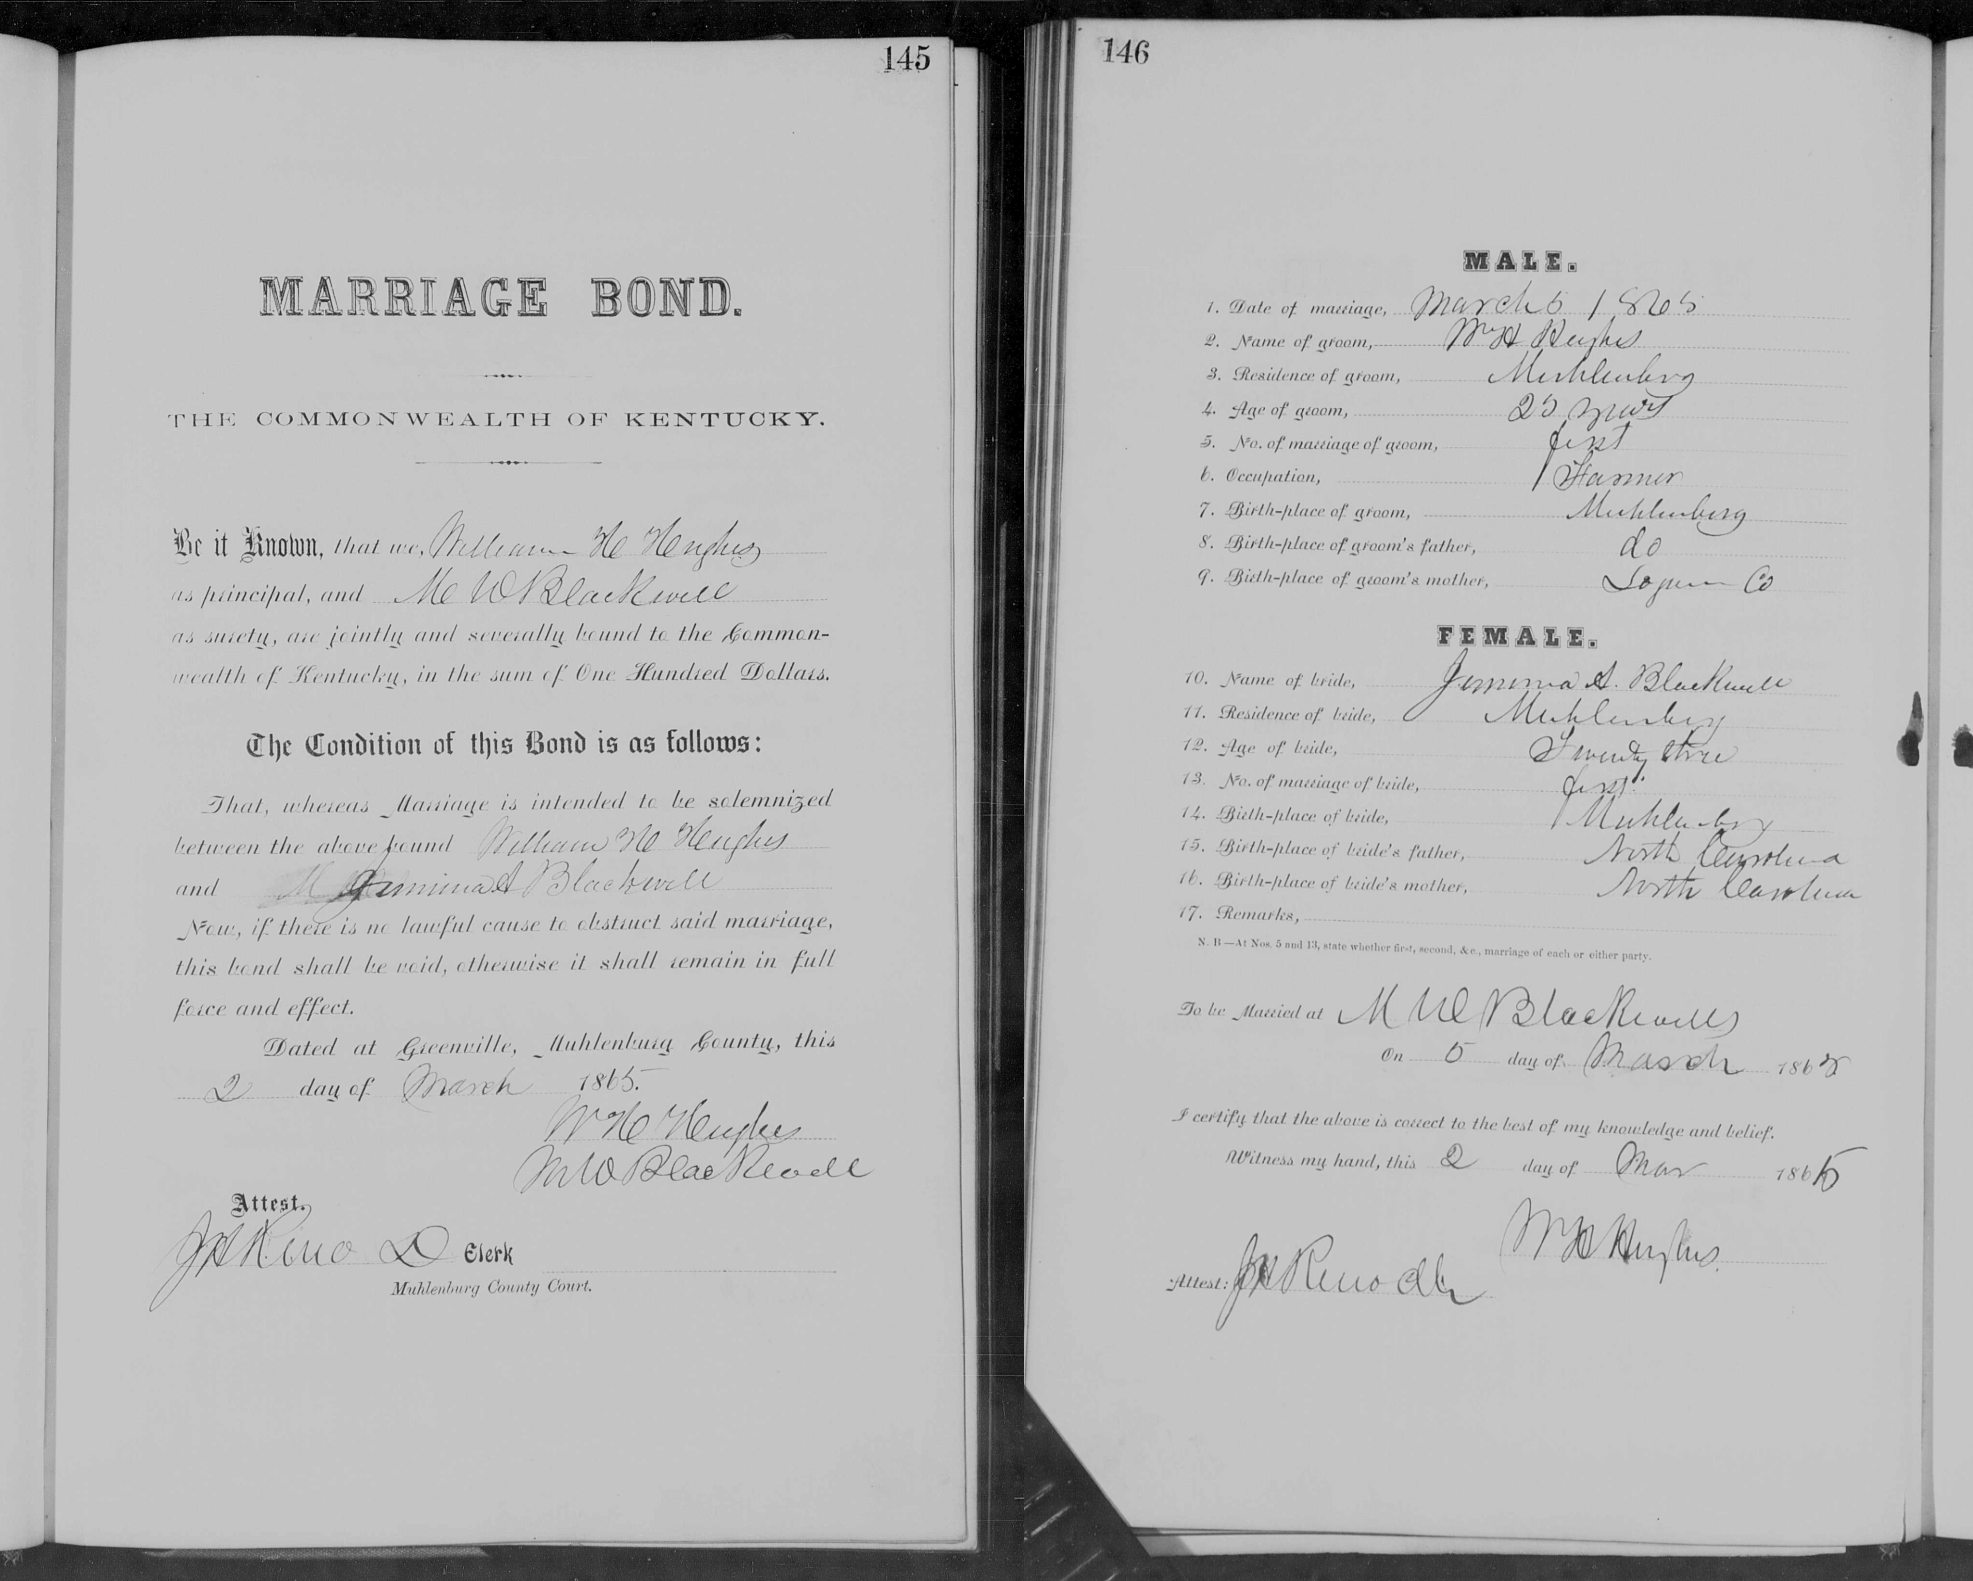 145
MARRIAGE BOND.
THE COMMONWEALTH OF KENTUCKY.
Be it Known, that we, William H Hughes
as principal, and M W Blackwell
as surety, are jointly and severally bound to the Common-
wealth of Kentucky, in the sum of One Hundred Dollars.
The Condition of this Bond is as follows:
That, whereas Marriage is intended to be solemnized
between the above bound William H Hughes
and M Jemima A Blackwell
Now, if there is no lawful cause to obstruct said marriage,
this bond shall be void, otherwise it shall remain in full
force and effect.
Dated at Greenville, Muhlenburg County, this
2 day of March 1865.
W H Hughes
M W Blackwell
Attest.
Reno D Clerk
Muhlenburg County Court.
146
MALE.
1. Date of marriage, March 5 1865
2. Name of groom, Wm H Hughes
3. Residence of groom, Muhlenberg
4. Age of groom, years
5. No. of marriage of groom, first
6. Occupation, Farmer
7. Birth-place of groom, Muhlenberg
8. Birth-place of groom's father, do
9. Birth-place of groom's mother, Logan Co
FEMALE.
10. Name of bride, Jemima A. Blackwell
11. Residence of bride, Muhlenberg
12. Age of bride, Twenty three
13. No. of marriage of bride, first.
14. Birth-place of bride, Muhlenberg
15. Birth-place of bride's father, North Carolina
16. Birth-place of bride's mother, North Carolina
17. Remarks,
N. B—At Nos. 5 and 13, state whether first, second, &c., marriage of each or either party.
To be Married at M W Blackwells
On 5 day of March 1865
I certify that the above is correct to the best of my knowledge and belief.
Witness my hand, this 2 day of Mar 1865
W H Hughes.
Attest: Reno